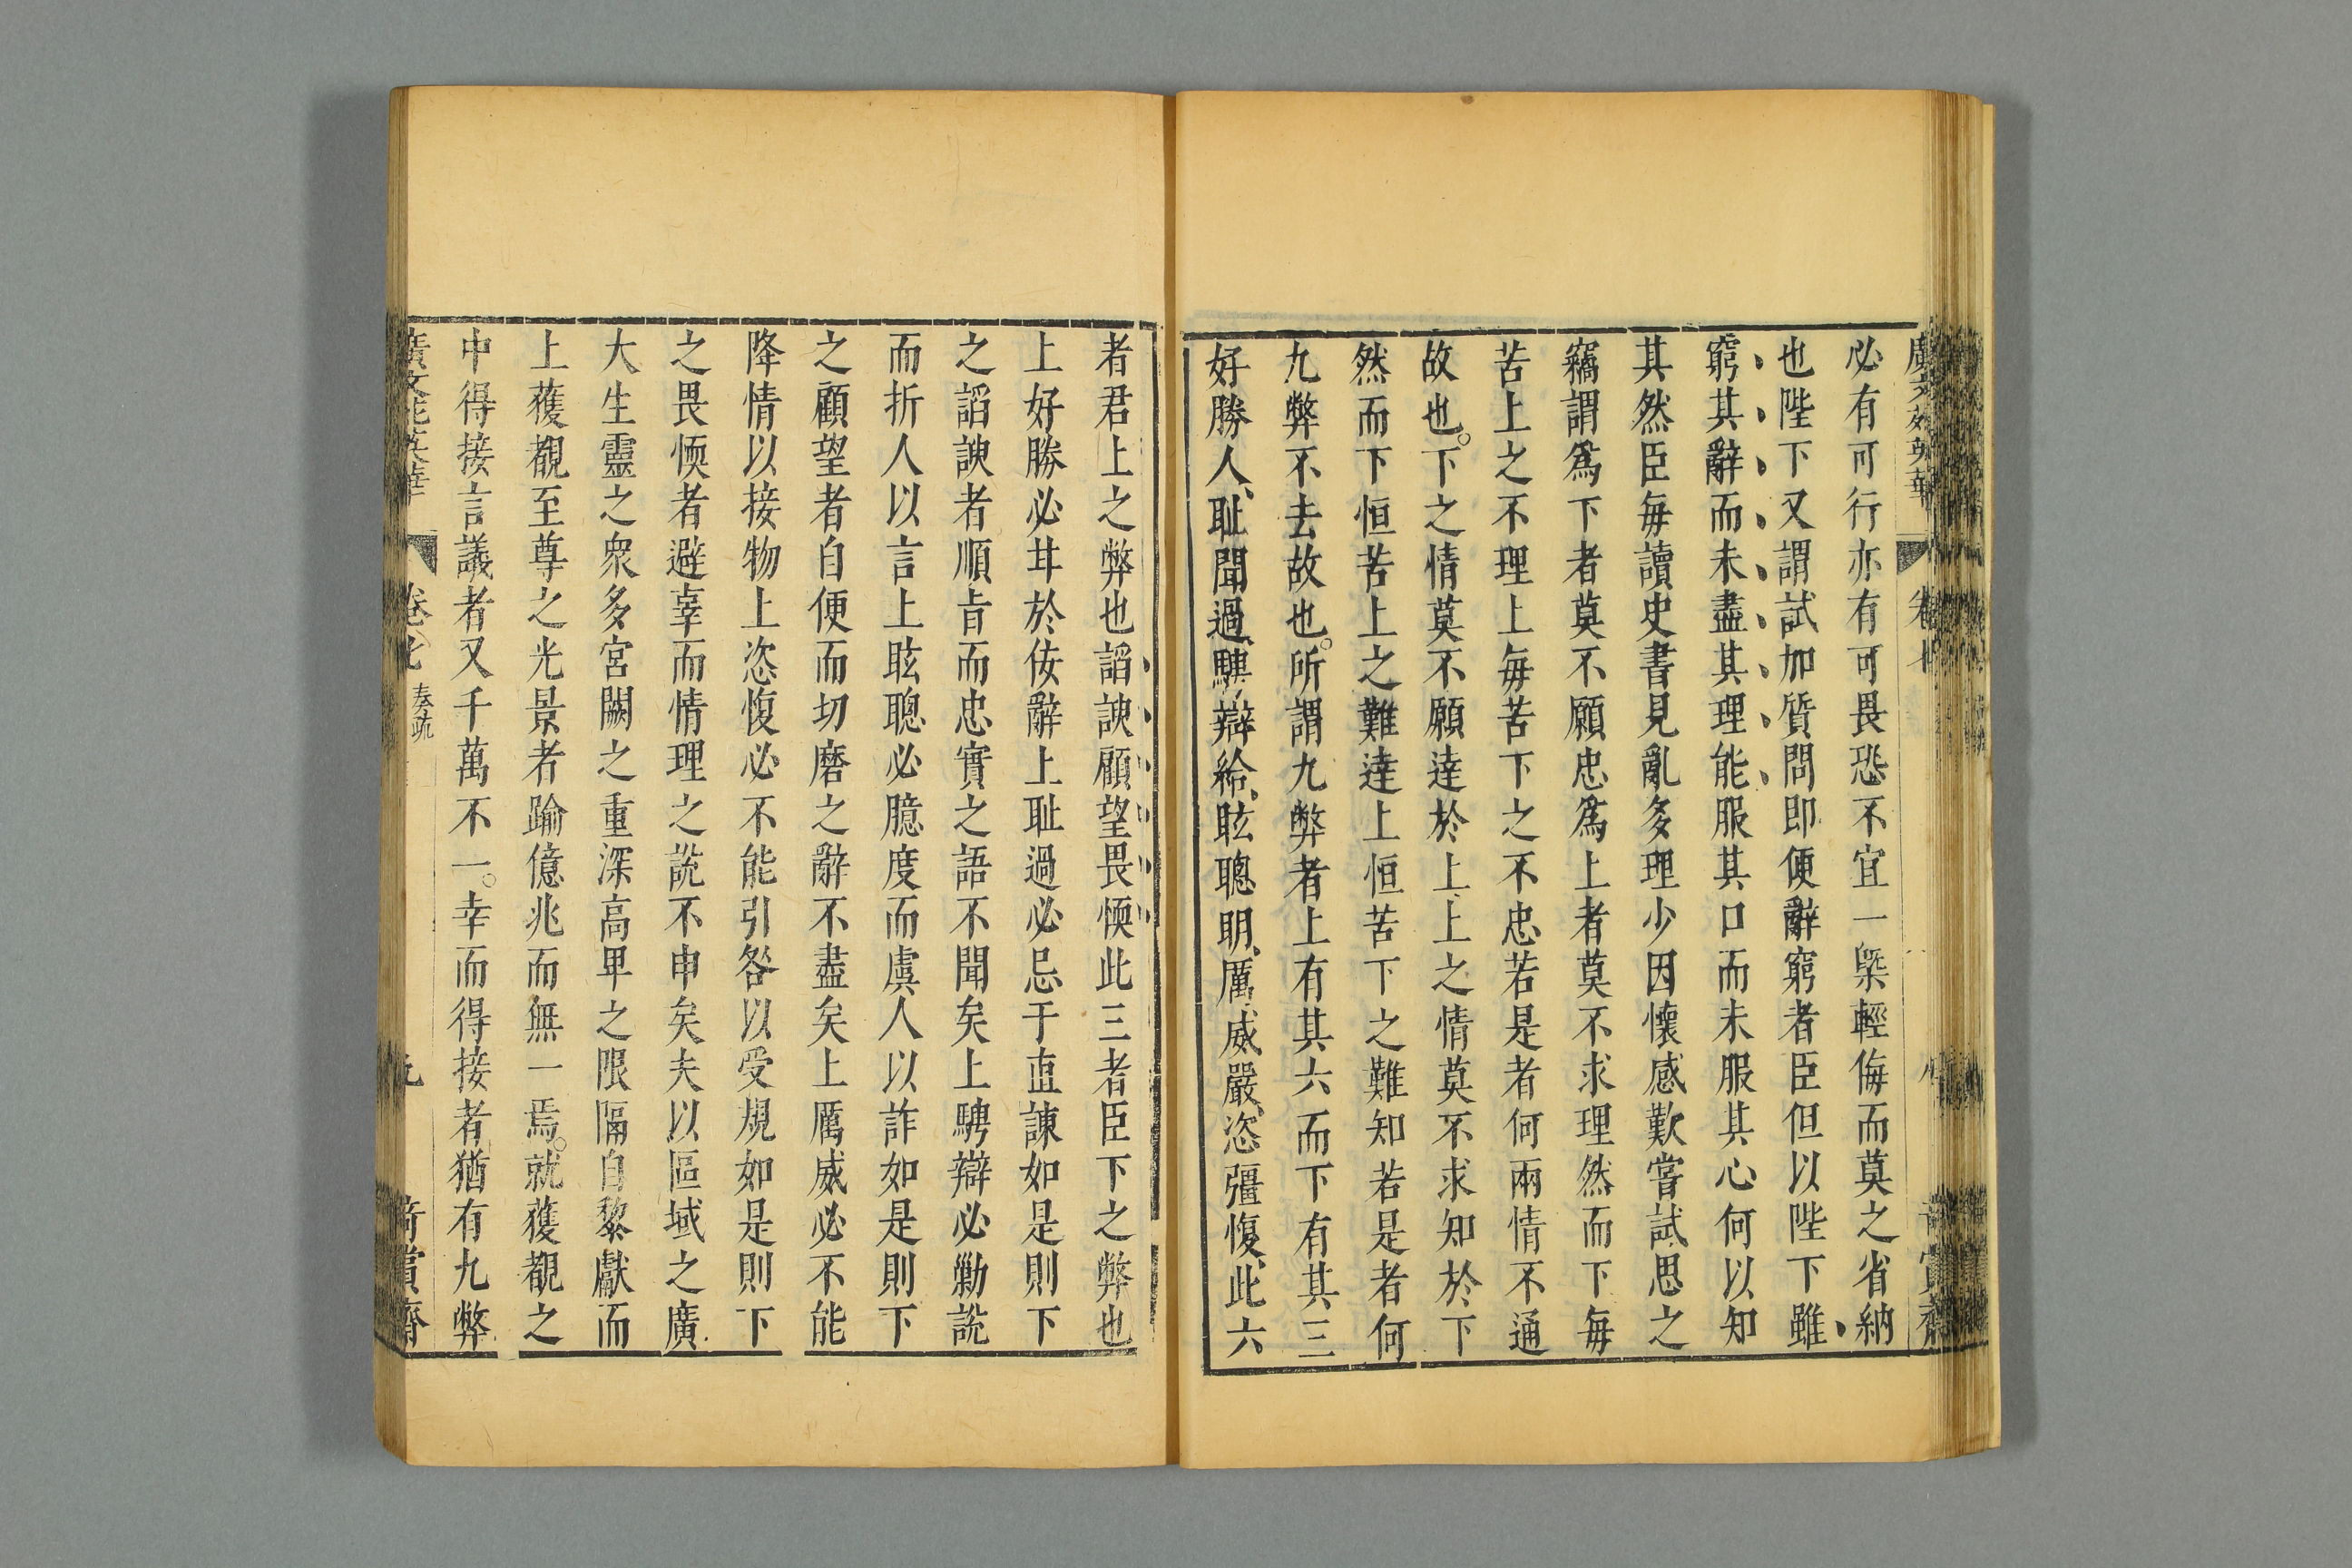 必有可行亦有可畏恐不宜一槩輕侮而莫之省納
也陛下又謂試加質問即便辭窮者臣但以陛下雖
窮其辭而未盡其理能服其口而未服其心何以知
其然臣每讀史書見亂多理少因懷感歎嘗試思之
竊謂爲下者莫不願忠爲上者莫不求理然而下每
苦上之不理上每苦下之不忠若是者何兩情不通
故也。下之情莫不願達於上、上之情莫不求知於下
然而下恒苦上之難達上恒苦下之難知若是者何
九弊不去故也。所謂九弊者上有其六而下有其三
好勝人、耻聞過、騁辯給、眩聰明、厲威嚴、恣彊愎、此六
者君上之弊也謟諛顧望畏愞此三者臣下之弊也
上好勝必甘於佞辭上耻過必忌于直諫如是則下
之謟諛者順旨而忠實之語不聞矣上騁辯必勦說
而折人以言上眩聰必臆度而虞人以詐如是則下
之顧望者自便而切磨之辭不盡矣上厲威必不能
降情以接物上恣愎必不能引咎以受規如是則下
之畏愞者避辜而情理之說不申矣夫以區域之廣
大生靈之衆多宮闕之重深高卑之限隔自黎獻而
上獲覩至尊之光景者踰億兆而無一焉。就獲覩之
中得接言議者又千萬不一。幸而得接者猶有九弊
廣文苑英華 卷 奏疏 奇賞齋